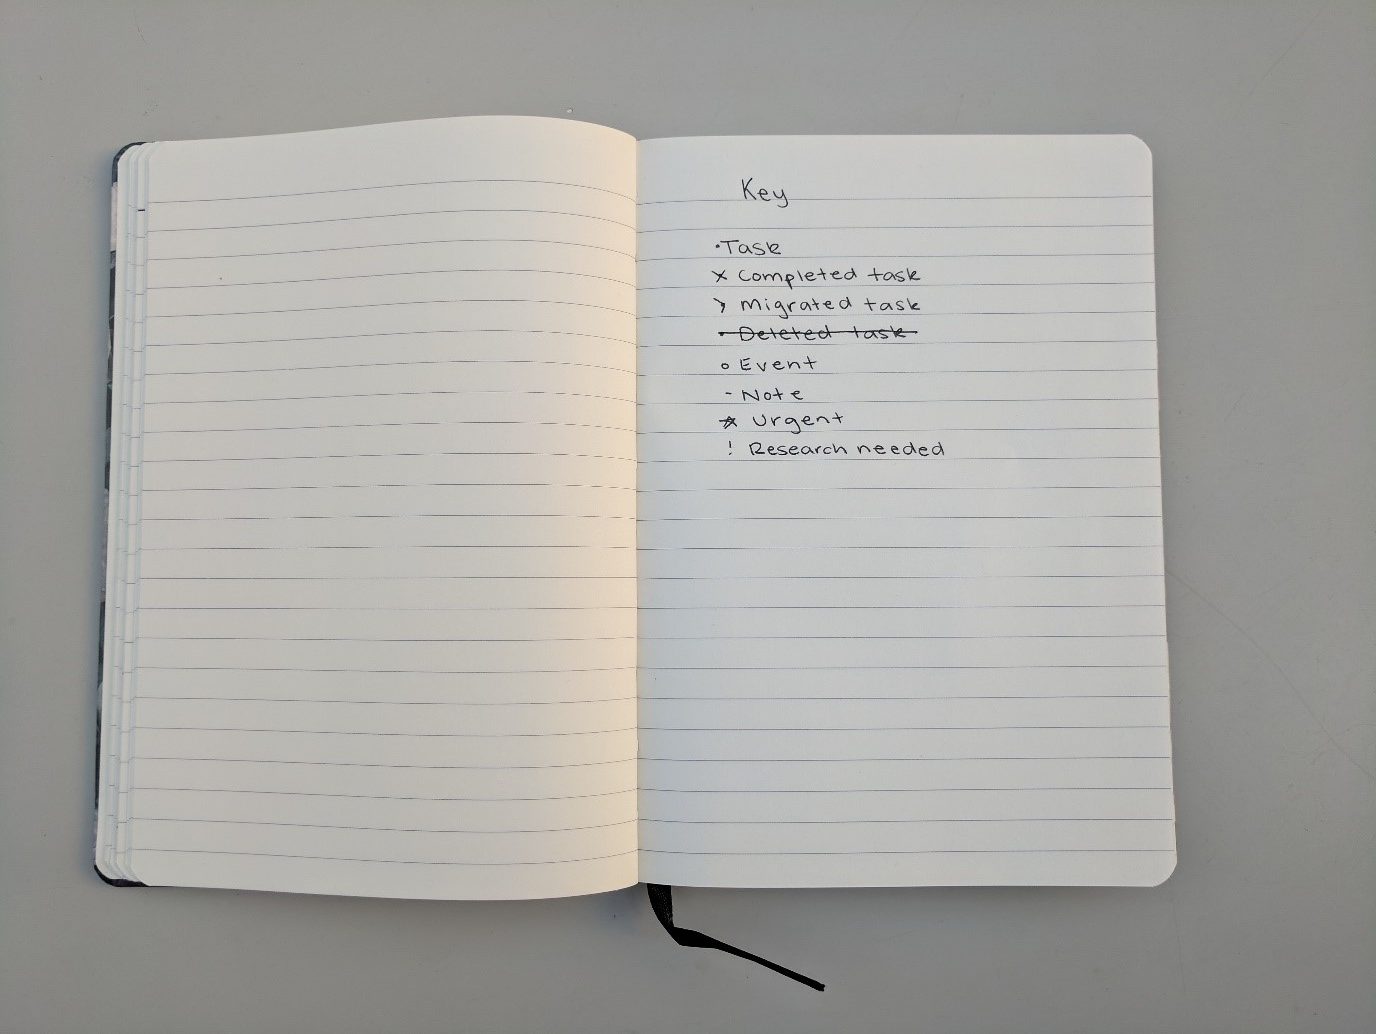 Key
· Task
× Completed task
> Migrated task
· Deleted task
o Event
- Note
☆ Urgent
! Research needed